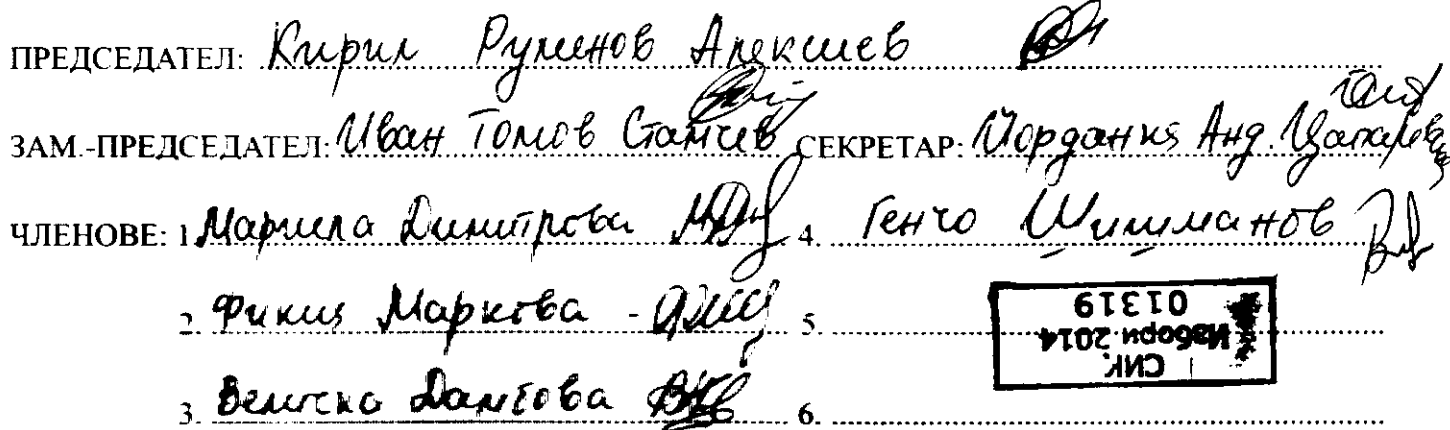 ПРЕДСЕДАТЕЛ: Кирил Руменов Алексиев
ЗАМ.-ПРЕДСЕДАТЕЛ: Иван Томов Станчев СЕКРЕТАР: Йорданка Анд.
ЧЛЕНОВЕ: 1 Мариела Димитрова 4. Генчо Шишманов
2. Фикия Маркова 5.
СИК.
Избори 2014
01319
3. Величка 6.